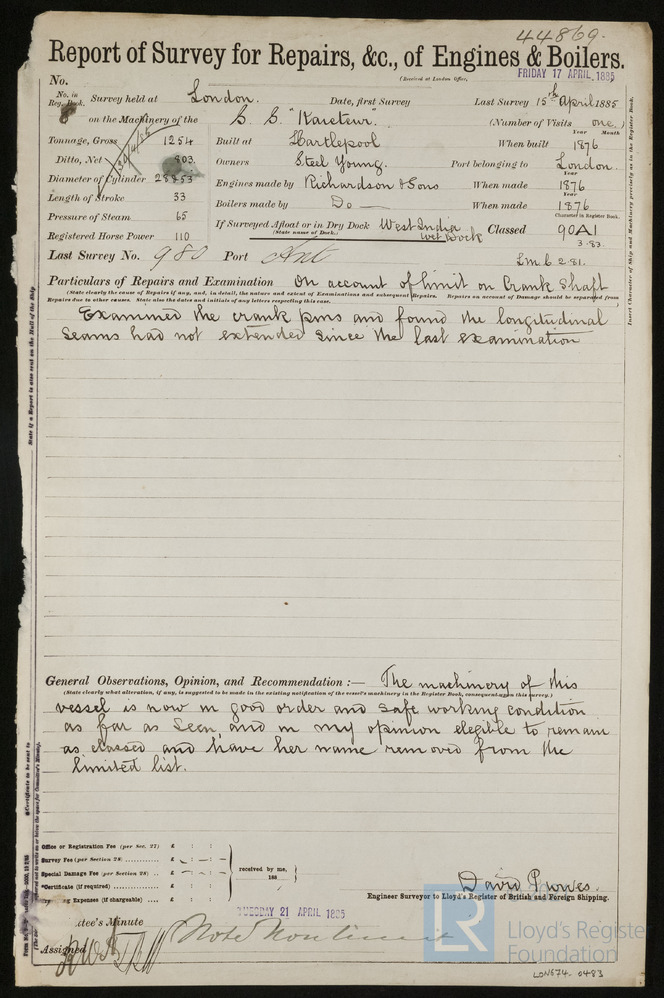 44869.
Report of Survey for Repairs, &c., of Engines & Boilers.
(Received at London Office,
FRIDAY 17 APRIL 1885
No.
No. in Reg. Book. Survey held at London. Date, first Survey Last Survey 15th April 1885
8 on the Machinery of the S.S. "Kaieteur". (Number of Visits one.)
Year Month
Tonnage, Gross 1254 Built at Hartlepool When built 1876
Ditto, Net 803. Owners Steel Young. Port belonging to London.
Year
Diameter of Cylinder 28 & 53 Engines made by Richardson & Sons When made 1876
Year
Length of Stroke 33 Boilers made by Do — When made 1876
Character in Register Book.
Pressure of Steam 65 If Surveyed Afloat or in Dry Dock West India Wet Dock Classed 90A1
(State name of Dock.)
3.83.
Registered Horse Power 110
Last Survey No. 980 Port Ant
LMC 2.81.
Particulars of Repairs and Examination On account of limit on Crank Shaft
(State clearly the cause of Repairs if any, and, in detail, the nature and extent of Examinations and subsequent Repairs. Repairs on account of Damage should be separated from
Repairs due to other causes. State also the dates and initials of any letters respecting this case.
Examined the crank pins and found the longitudinal
seams had not extended since the last examination
General Observations, Opinion, and Recommendation :— The machinery of this
(State clearly what alteration, if any, is suggested to be made in the existing notification of the vessel's machinery in the Register Book, consequent upon this survey.)
vessel is now in good order and safe working condition
as far as seen, and in my opinion elegible to remain
as classed and have her name removed from the
limited list.
Office or Registration Fee (per Sec. 27) £ : :
Survey Fee (per Section 28) £ : :
Special Damage Fee (per Section 28) £ : :
received by me,
188
*Certificate (if required) £ : :
Expenses (if chargeable) £ : :
David Purves.
Engineer Surveyor to Lloyd's Register of British and Foreign Shipping.
TUESDAY 21 APRIL 1885
ttee's Minute
Assigned
State if a Report is also sent on the Hull of the Ship
Insert Character of Ship and Machinery precisely as in the Register Book.
*Certificate to be sent to
LR
Lloyd's Register
Foundation
LON674-0483